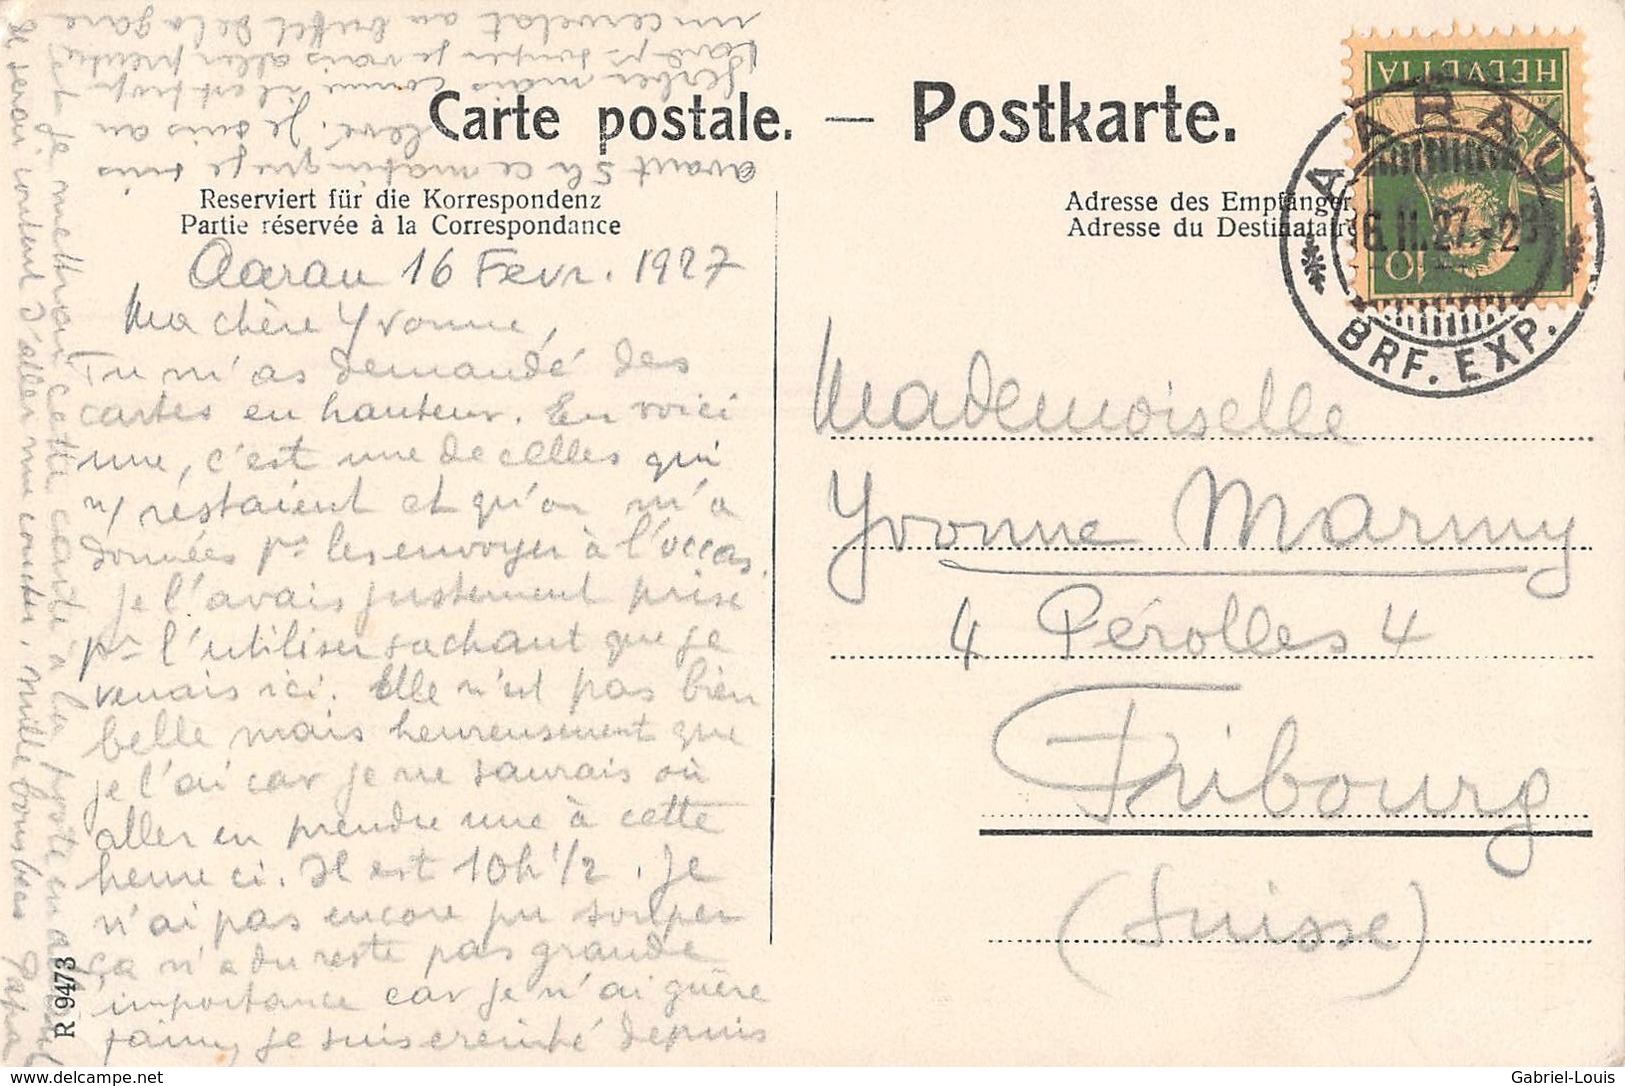 Carte postale. — Postkarte.
Reserviert für die Korrespondenz
Partie réservée à la Correspondance
Adresse des Empfänger
Adresse du Destinataire
HELVETIA
10
AARAU
16.II.27.-23
BRF. EXP.
Aarau 16 Fevr. 1927
Ma chère Yvonne,
Tu m'as demandé des
cartes en hauteur. En voici
une, c'est une de celles qui
m'restaient et qu'on m'a
données pr les envoyer à l'occas.
Je l'avais justement prise
pr l'utiliser sachant que je
venais ici. Elle n'est pas bien
belle mais heureusement que
je l'ai car je ne saurais où
aller en prendre une à cette
heure ci. Il est 10h 1/2. Je
n'ai pas encore pu souper
ça n'a du reste pas grande
importance car je n'ai guère
faim, je suis éreinté depuis
avant 5h ce matin que je suis
levé. Je suis au
Gerber mais comme il est trop
tard pr souper je vais aller prendre
un cervelat au buffet de la gare
et je mettrai cette carte à la poste en
Je serai content d'aller me coucher, mille bons becs Papa
Mademoiselle
Yvonne Marmy
4 Pérolles 4
Fribourg
(Suisse)
R 9473
delcampe.net
Gabriel-Louis